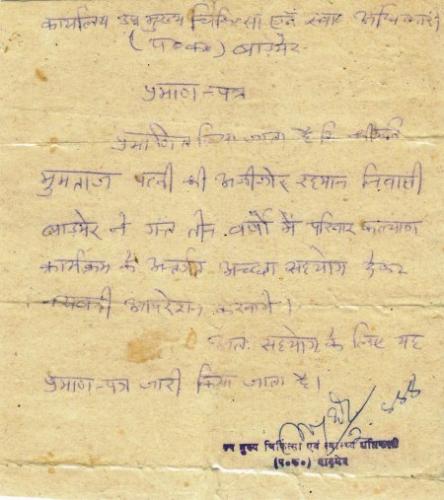 कार्यालय उप मुख्य चिकित्सा एवं स्वा० अधिकारी
(प०क०) बाड़मेर
प्रमाण-पत्र
प्रमाणित किया जाता है कि श्रीमति
मुमताज पत्नी श्री रहमान निवासी
बाड़मेर ने गत तीन वर्षों में परिवार कल्याण
कार्यक्रम के अन्तर्गत अच्छा सहयोग देकर
नसबन्दी आपरेशन करवाये।
अतः सहयोग के लिए यह
प्रमाण-पत्र जारी किया जाता है।
उप मुख्य चिकित्सा एवं स्वास्थ्य अधिकारी
(प०क०) बाड़मेर